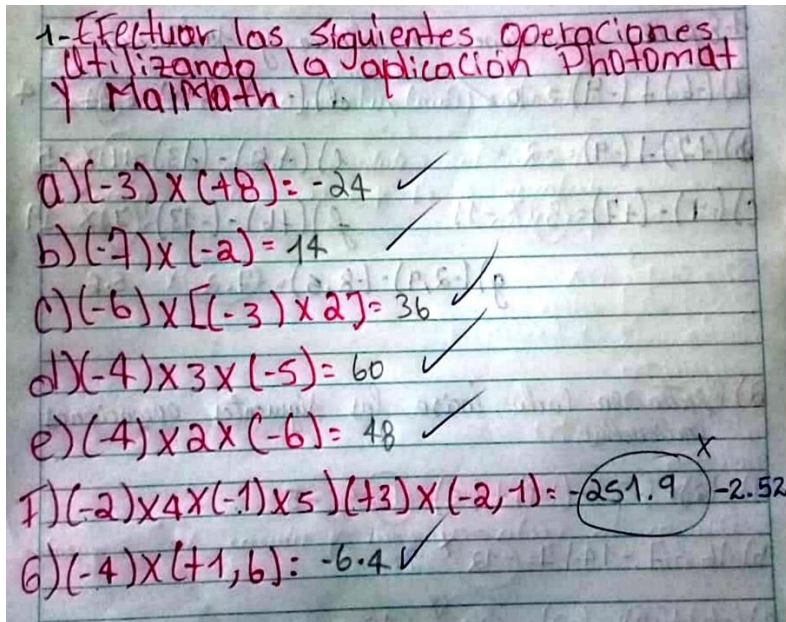 1-Efectuar las siguientes operaciones
Utilizando la aplicación Photomat
y MalMath
a)(-3)x(+8)= -24 ✓
b)(-7)x(-2)= 14 ✓
c)(-6)x[(-3)x2]= 36 ✓
d)(-4)x3x(-5)= 60 ✓
e)(-4)x2x(-6)= 48 ✓
F)(-2)x4x(-1)x5)(+3)x(-2,1)= -251.9 x -2.52
G)(-4)x(+1,6): -6.4 ✓